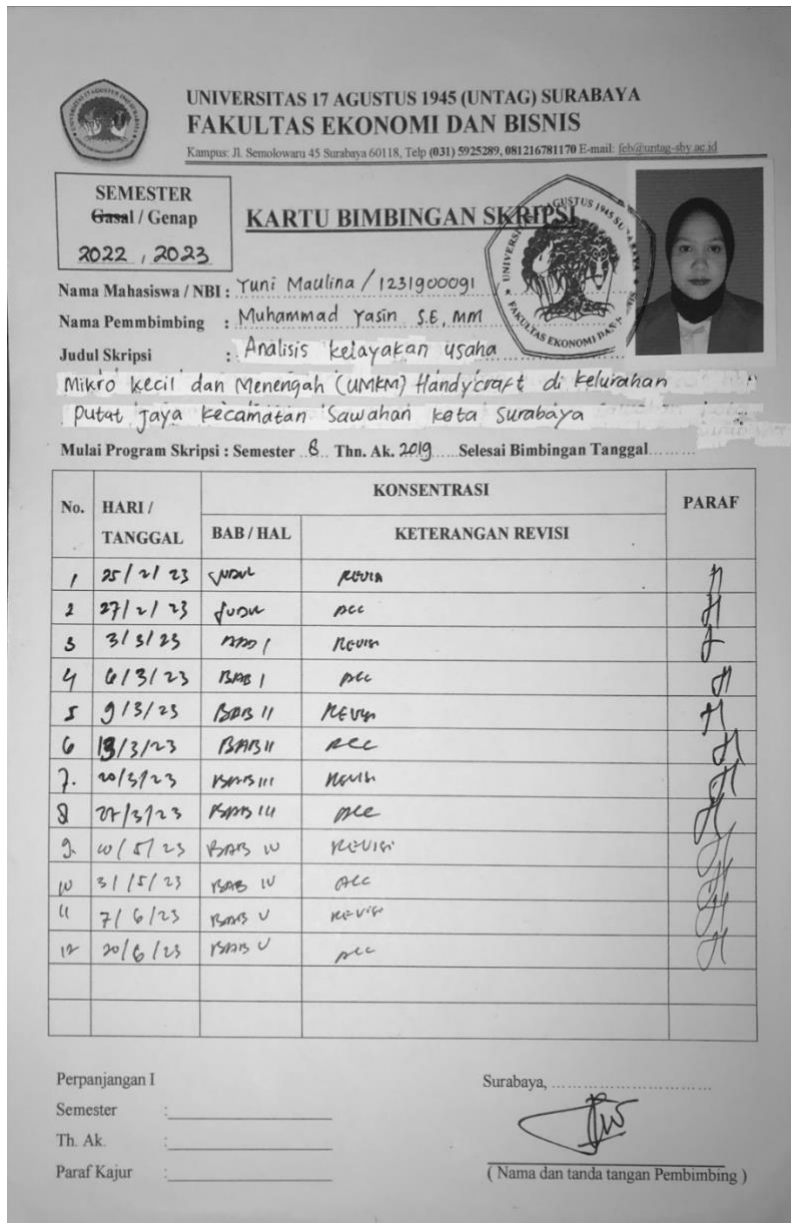 UNIVERSITAS 17 AGUSTUS 1945 (UNTAG) SURABAYA
FAKULTAS EKONOMI DAN BISNIS
Kampus: Jl. Semolowaru 45 Surabaya 60118, Telp (031) 5925289, 081216781170 E-mail: feb@untag-sby.ac.id
SEMESTER
Gasal / Genap
2022, 2023
KARTU BIMBINGAN SKRIPSI
Nama Mahasiswa / NBI : Yuni Maulina / 1231900091
Nama Pemmbimbing : Muhammad Yasin S.E, MM
Judul Skripsi : Analisis kelayakan usaha
Mikro kecil dan Menengah (UMKM) Handycraft di kelurahan
Putat jaya kecamatan Sawahan kota Surabaya
Mulai Program Skripsi : Semester 8 Thn. Ak. 2019 Selesai Bimbingan Tanggal
No. HARI / TANGGAL KONSENTRASI PARAF
BAB / HAL KETERANGAN REVISI
1 25/2/23 Judul Revisi
2 27/2/23 Judul ACC
3 3/3/23 BAB I Revisi
4 6/3/23 BAB I ACC
5 9/3/23 BAB II Revisi
6 13/3/23 BAB II ACC
7. 20/3/23 BAB III Revisi
8 27/3/23 BAB III ACC
9. 10/5/23 BAB IV REVISI
10 31/5/23 BAB IV ACC
11 7/6/23 BAB V Revisi
12 20/6/23 BAB V ACC
Perpanjangan I
Semester :
Th. Ak. :
Paraf Kajur :
Surabaya,
( Nama dan tanda tangan Pembimbing )